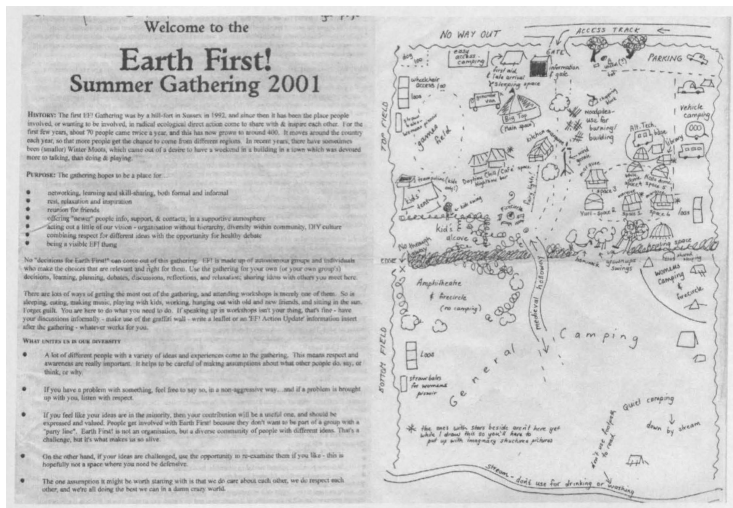 Welcome to the
Earth First!
Summer Gathering 2001
HISTORY: The first EF! Gathering was by a hill-fort in Sussex in 1992, and since then it has been the place people
involved, or wanting to be involved, in radical ecological direct action come to share with & inspire each other. For the
first few years, about 70 people came twice a year, and this has now grown to around 400. It moves around the country
each year, so that more people get the chance to come from different regions. In recent years, there have sometimes
been (smaller) Winter Moots, which came out of a desire to have a weekend in a building in a town which was devoted
more to talking, than doing & playing.
PURPOSE: The gathering hopes to be a place for...
networking, learning and skill-sharing, both formal and informal
rest, relaxation and inspiration
reunion for friends
offering "newer" people info, support, & contacts, in a supportive atmosphere
acting out a little of our vision - organisation without hierarchy, diversity within community, DIY culture
combining respect for different ideas with the opportunity for healthy debate
being a visible EF! thang
No "decisions for Earth First!" can come out of this gathering. EF! is made up of autonomous groups and individuals
who make the choices that are relevant and right for them. Use the gathering for your own (or your own group's)
decisions, learning, planning, debates, discussions, reflections, and relaxation; sharing ideas with others you meet here.
There are lots of ways of getting the most out of the gathering, and attending workshops is merely one of them. So is
sleeping, eating, making music, playing with kids, working, hanging out with old and new friends, and sitting in the sun.
Forget guilt. You are here to do what you need to do. If speaking up in workshops isn't your thing, that's fine - have
your discussions informally - make use of the graffiti wall - write a leaflet or an 'EF! Action Update' information insert
after the gathering - whatever works for you.
WHAT UNITES US IS OUR DIVERSITY
A lot of different people with a variety of ideas and experiences come to the gathering. This means respect and
awareness are really important. It helps to be careful of making assumptions about what other people do, say, or
think, or why.
If you have a problem with something, feel free to say so, in a non-aggressive way... and if a problem is brought
up with you, listen with respect.
If you feel like your ideas are in the minority, then your contribution will be a useful one, and should be
expressed and valued. People get involved with Earth First! because they don't want to be part of a group with a
"party line". Earth First! is not an organisation, but a diverse community of people with different ideas. That's a
challenge, but it's what makes us so alive.
On the other hand, if your ideas are challenged, use the opportunity to re-examine them if you like - this is
hopefully not a space where you need be defensive.
The one assumption it might be worth starting with is that we do care about each other, we do respect each
other, and we're all doing the best we can in a damn crazy world.
NO WAY OUT
ACCESS TRACK
GATE
PARKING
easy
access
camping
first aid
& late arrival
sleeping space
information
& gate
wheelchair
access loo
loos
TOP FIELD
games
field
Big Top
(main space)
kitchen
woodpiles -
use for
burning/
building
Alt. Tech.
vehicle
camping
kids
kid's
alcove
Yurt - space 2
loos
swings
womens
camping
&
firecircle
Amphitheatre
& firecircle
(no camping)
medieval hollow way
General Camping
BOTTOM FIELD
loos
straw bales
for womens
* the ones with stars beside aren't here yet
while I draw this so you'll have to
put up with imaginary structure pictures
Quiet camping
down by stream
stream - don't use for drinking or washing